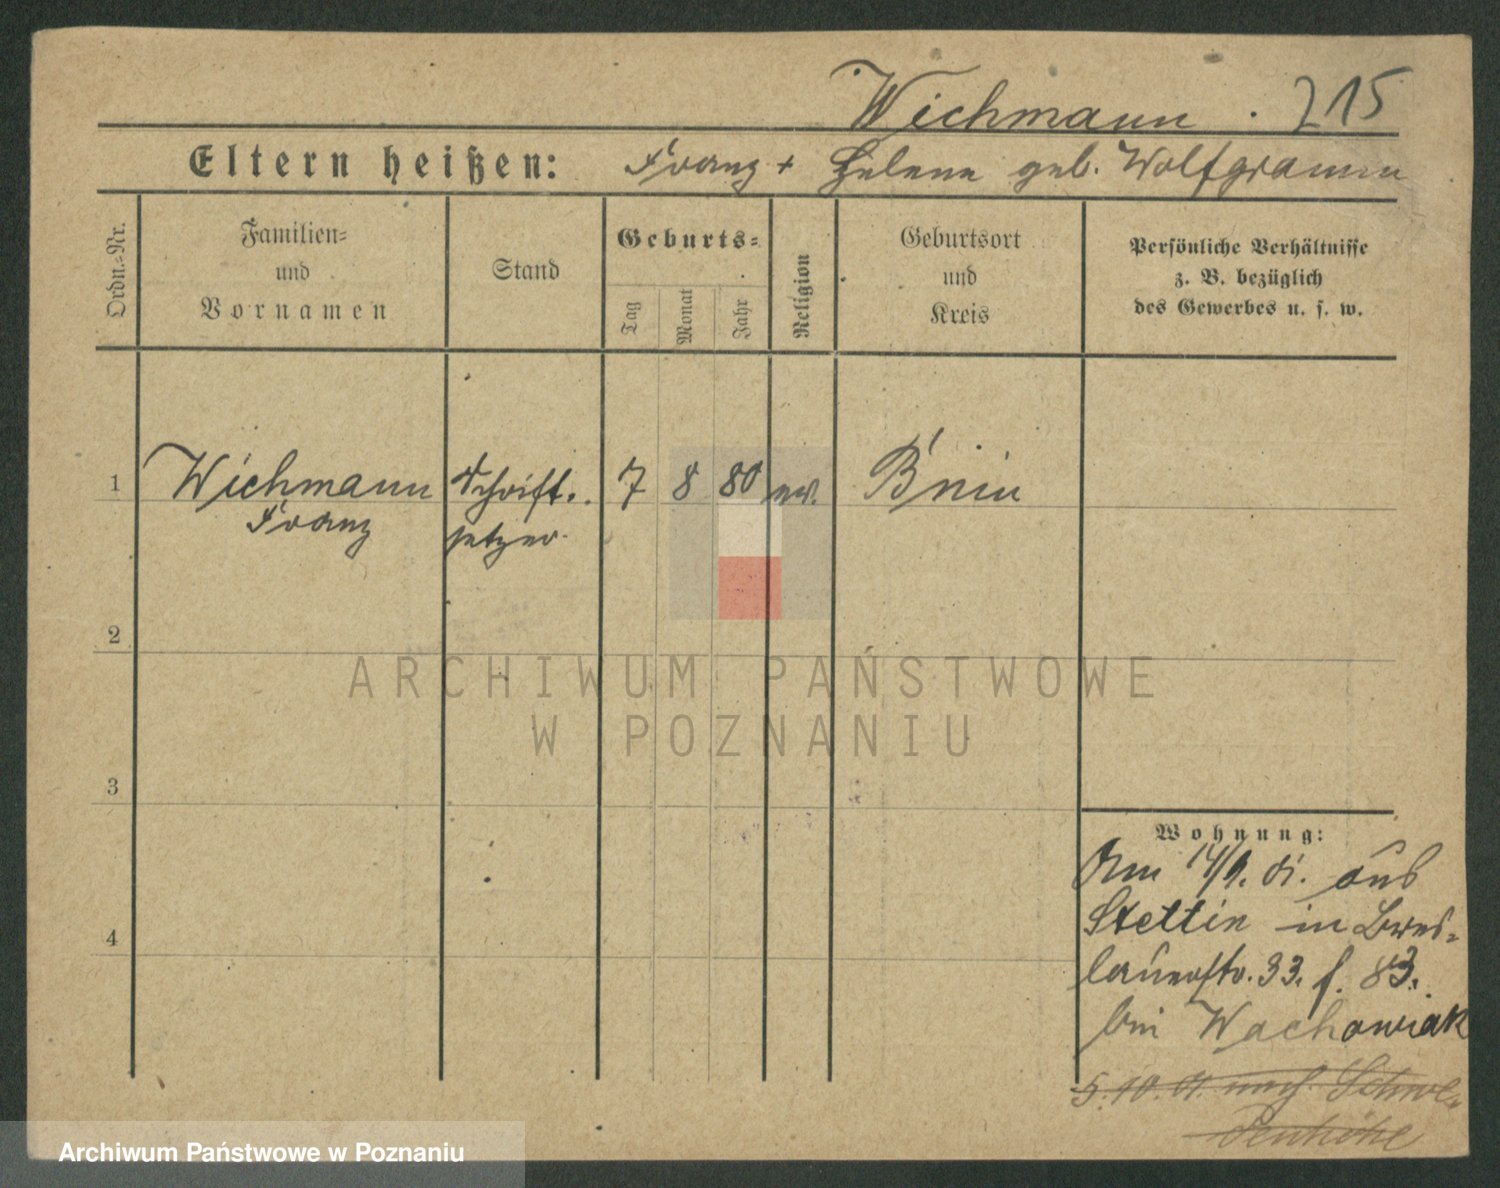 Wichmann. 215
Eltern heißen: Franz + Helene geb. Wolfgramm
Ordn.-Nr.
Familien-
und
Vornamen
Stand
Geburts-
Tag
Monat
Jahr
Religion
Geburtsort
und
Kreis
Persönliche Verhältnisse
z. B. bezüglich
des Gewerbes u. s. w.
1 Wichmann Schrift- 7 8 80 ev. Bnin
Franz setzer
2
ARCHIWUM PAŃSTWOWE
W POZNANIU
3
Wohnung:
Am 14/9. 01. aus
Stettin in Bres-
lauerstr. 33. f. 83.
bei Wachowiak
4
5.10.01. nach
Archiwum Państwowe w Poznaniu